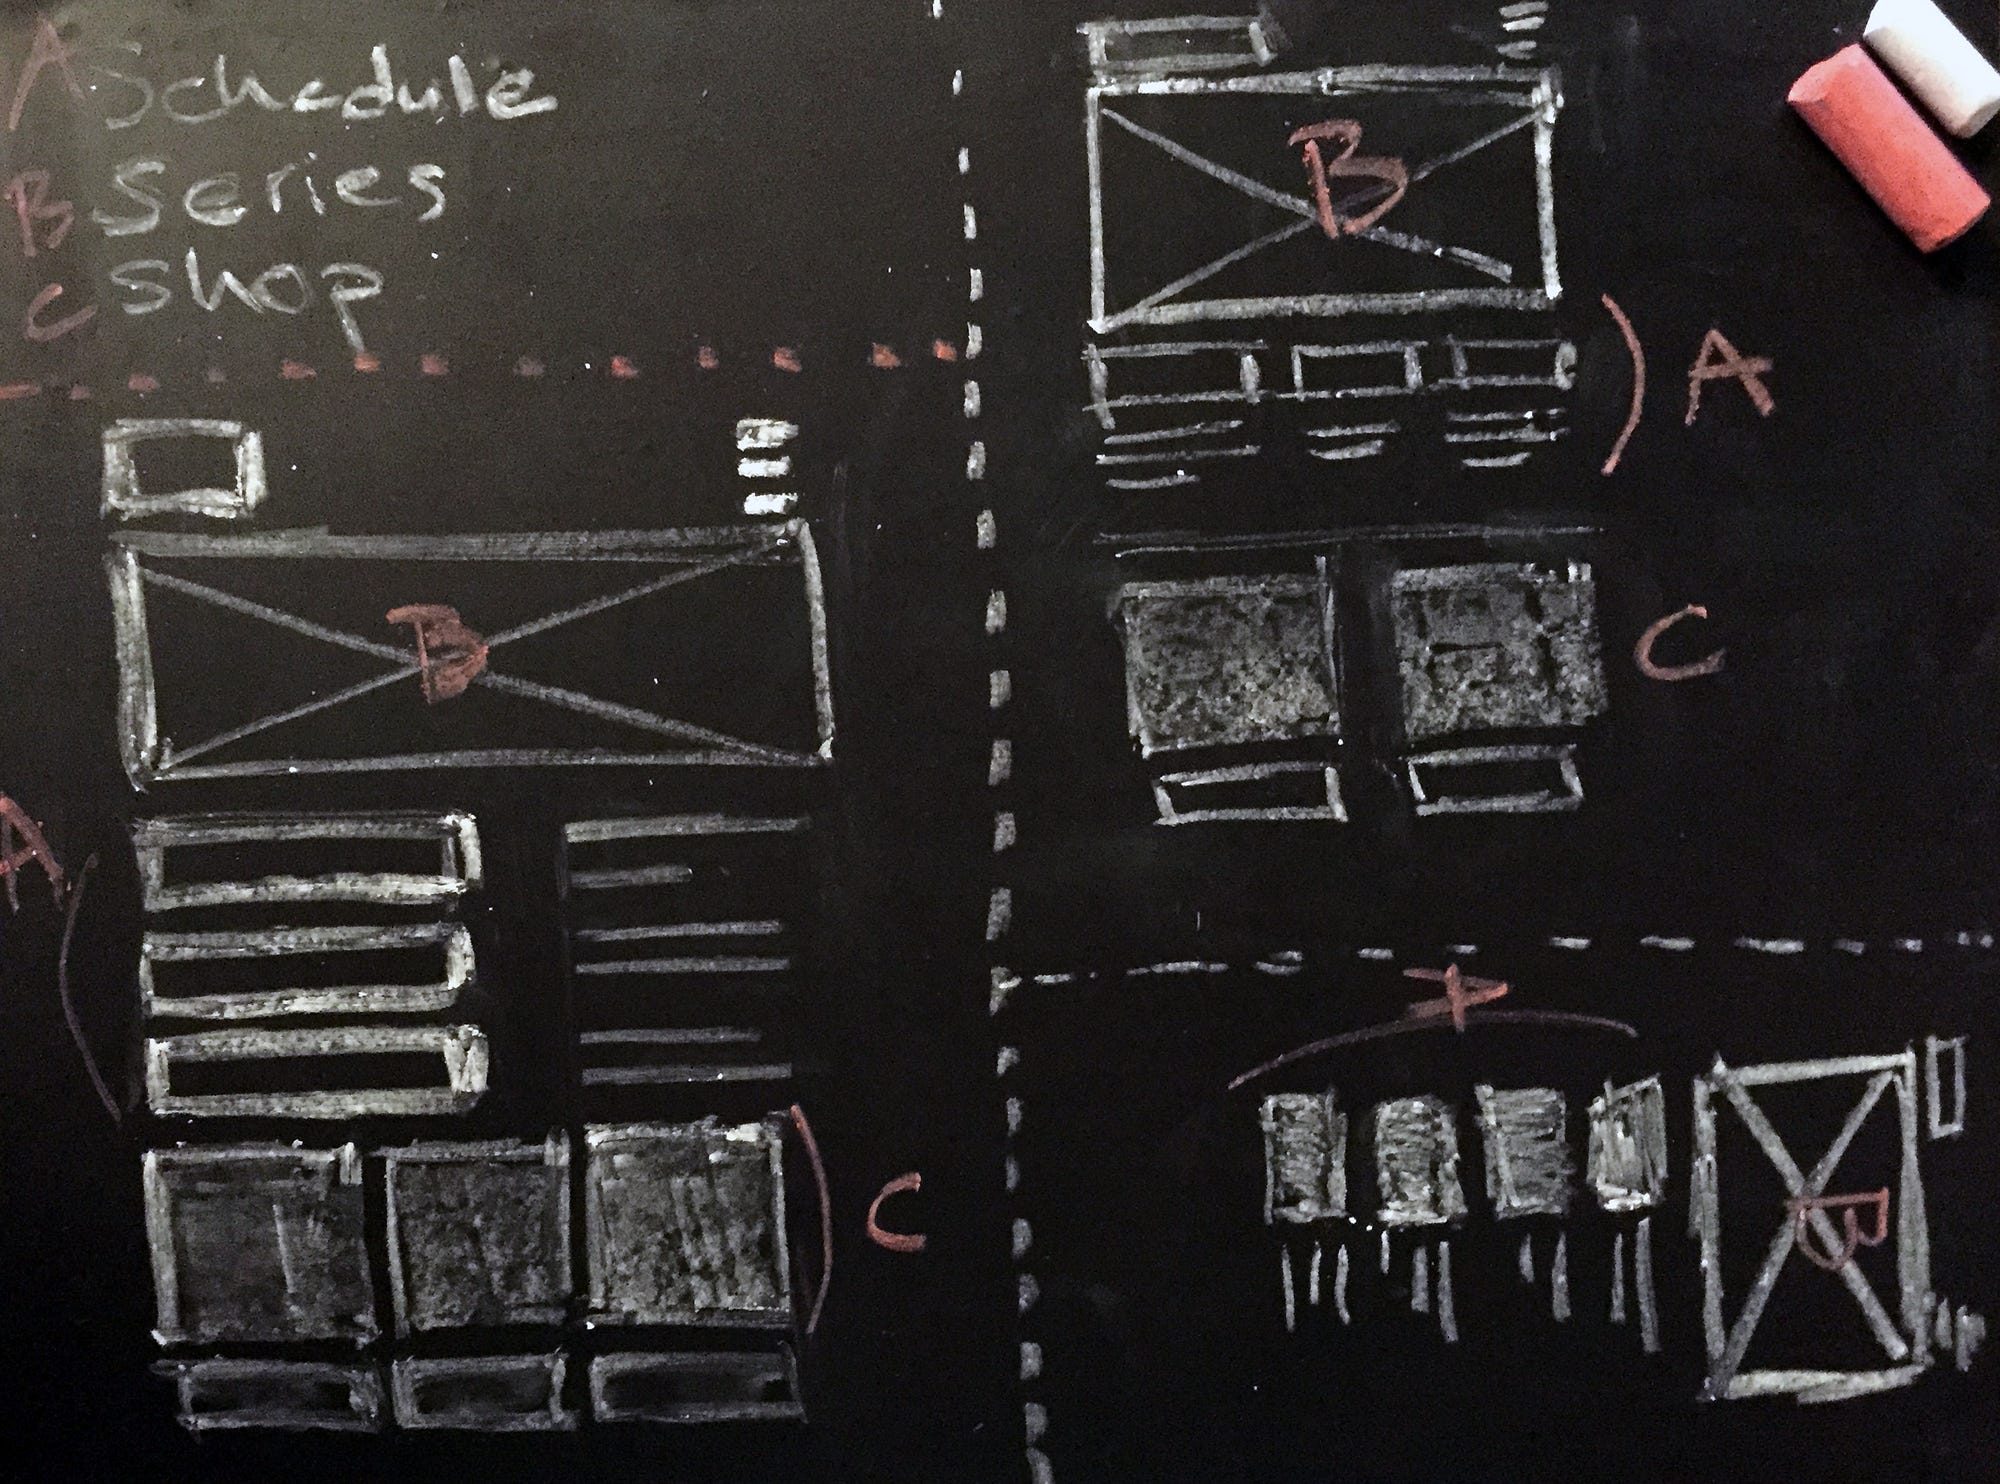 A Schedule
B Series
C Shop
B
A
C
B
A
C
A
B